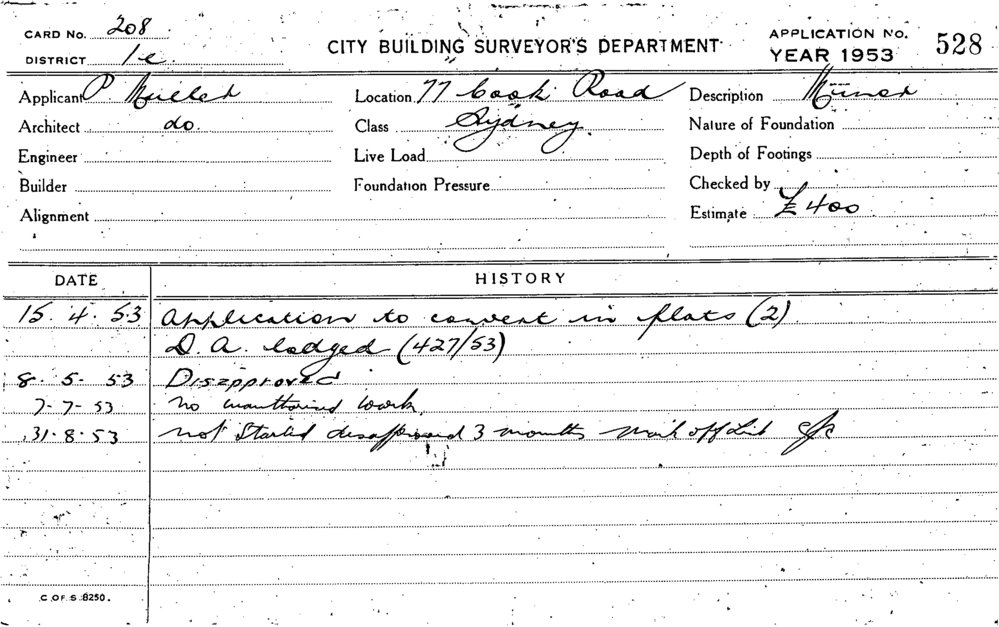 CARD No. 208
DISTRICT 1c.
CITY BUILDING SURVEYOR'S DEPARTMENT
APPLICATION No. 528
YEAR 1953
Applicant P. Location 77 Cook Road Description Minor
Architect do. Class Sydney. Nature of Foundation
Engineer Live Load Depth of Footings
Builder Foundation Pressure Checked by
Alignment Estimate £400
DATE HISTORY
15. 4. 53 Application to convert in flats (2)
D. A. lodged (427/53)
8. 5. 53 Disapproved
7-7-53 No unauthorised work.
31-8-53 not Started disapproved 3 months off List
C. OF. S. 8250.